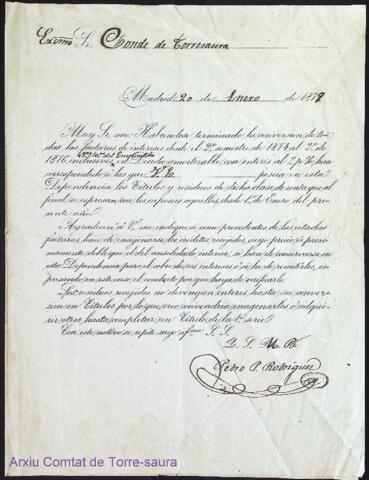 Exc̃mo Sr. Conde de Torresaura
Madrid 20 de Enero de 1879
Muy Sr. mio: Habiendose terminado la conversion de to-
das las facturas de intereses desde el 2º semestre de 1874 al 2º de
1876 inclusives, en deuda amortizable con interés al 2 p% han
correspondido à las que V. E. poseia en esta
Dependencia los Titulos y residuos de dicha clase de renta que al
final se espresan con los cupones aquellos, desde 1º de Enero del pre-
sente año.
Agradeceré à V. me indique si como procedentes de las citadas
facturas, han de enagenarse los creditos recojidos, cuyo precio es proxi-
mamente doble que el del consolidado interior, si han de conservarse en
esta Dependencia para el cobro de sus intereses ó si ha de remitirlos, es-
presando en este caso el conducto por que haya de verificarlo.
Los residuos recojidos no devengan interes hasta su conver-
sion en Titulos por lo que creo convendria enagenarlos ó adqui-
rir otros hasta completar un Titulo de la 1ª serie.
Con este motivo se repite suyo afmo. S. S.
Q. S. M. B.
Pedro P. Rodriguez
Arxiu Comtat de Torre-saura